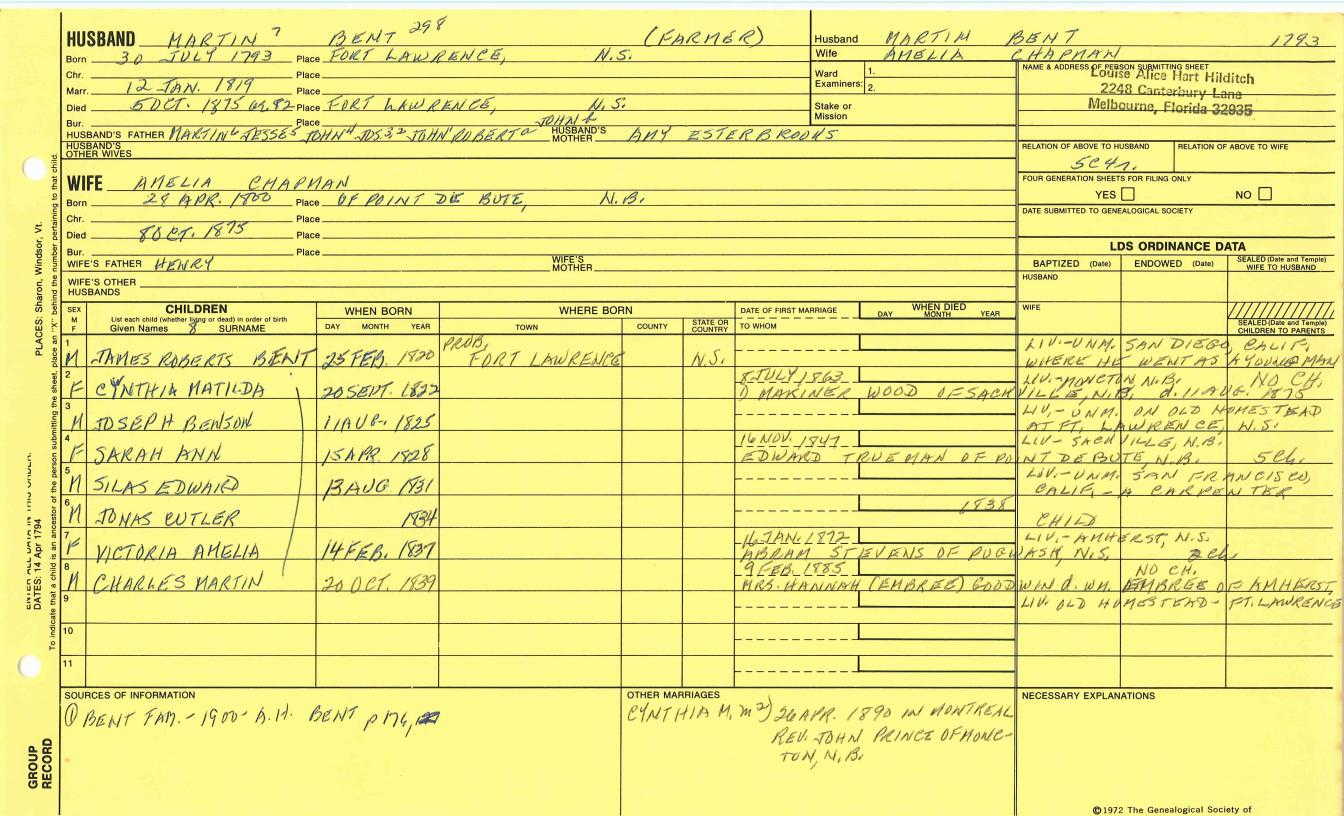 HUSBAND MARTIN 7 BENT 298 (FARMER)
Born 30 JULY 1793 Place FORT LAWRENCE, N.S.
Chr. Place
Marr. 12 JAN. 1819 Place
Died 5 OCT. 1875 Place FORT LAWRENCE, N.S.
Bur. Place
HUSBAND'S FATHER MARTIN 6 JESSE 5 JOHN 4 JOS 3 JOHN 2 ROBERT JOHN HUSBAND'S MOTHER AMY ESTERBROOKS
HUSBAND'S OTHER WIVES
WIFE AMELIA CHAPMAN
Born 28 APR. 1800 Place OF POINT DE BUTE, N.B.
Chr. Place
Died 8 OCT. 1875 Place
Bur. Place
WIFE'S FATHER HENRY WIFE'S MOTHER
WIFE'S OTHER HUSBANDS
Husband MARTIN BENT 1793
Wife AMELIA CHAPMAN
Ward Examiners: 1.
2.
Stake or Mission
NAME & ADDRESS OF PERSON SUBMITTING SHEET
Louise Alice Hart Hilditch
2248 Canterbury Lane
Melbourne, Florida 32935
RELATION OF ABOVE TO HUSBAND RELATION OF ABOVE TO WIFE
5C4r.
FOUR GENERATION SHEETS FOR FILING ONLY
YES NO
DATE SUBMITTED TO GENEALOGICAL SOCIETY
LDS ORDINANCE DATA
BAPTIZED (Date) ENDOWED (Date) SEALED (Date and Temple) WIFE TO HUSBAND
HUSBAND
WIFE
SEALED (Date and Temple) CHILDREN TO PARENTS
SEX M F
CHILDREN
List each child (whether living or dead) in order of birth
Given Names 8 SURNAME
WHEN BORN
DAY MONTH YEAR
WHERE BORN
TOWN COUNTY STATE OR COUNTRY
DATE OF FIRST MARRIAGE
TO WHOM
WHEN DIED
DAY MONTH YEAR
1 M JAMES ROBERTS BENT 25 FEB. 1820 PROB. FORT LAWRENCE N.S. LIV.-UNM. SAN DIEGO, CALIF.,
WHERE HE WENT AS A YOUNG MAN
2 F CYNTHIA MATILDA 20 SEPT. 1822 8 JULY 1863 LIV.-MONCTON N.B. NO CH.
MARINER WOOD OF SACKVILLE, N.B. d. 11 AUG. 1875
3 M JOSEPH BENSON 11 AUG. 1825 LIV.- UNM. ON OLD HOMESTEAD
AT FT. LAWRENCE, N.S.
4 F SARAH ANN 15 APR. 1828 16 NOV. 1847 LIV- SACKVILLE, N.B.
EDWARD TRUEMAN OF POINT DE BUTE, N.B. 5 Ch.
5 M SILAS EDWARD 13 AUG 1831 LIV.-UNM. SAN FRANCISCO,
CALIF.- A CARPENTER
6 M JONAS CUTLER 1834 1838
CHILD
7 F VICTORIA AMELIA 14 FEB. 1837 16 JAN. 1872 LIV.-AMHERST, N.S.
ABRAM STEVENS OF PUGWASH, N.S. 2 Ch.
8 M CHARLES MARTIN 20 OCT. 1839 9 FEB. 1885 NO CH.
MRS. HANNAH (EMBREE) GOODWIN d. WM. EMBREE OF AMHERST,
9 LIV. OLD HOMESTEAD- FT. LAWRENCE
10
11
SOURCES OF INFORMATION
① BENT FAM.- 1900- A.H. BENT p 176,
OTHER MARRIAGES
CYNTHIA M. m 2) 26 APR. 1890 IN MONTREAL
REV. JOHN PRINCE OF MONC-
TON, N.B.
NECESSARY EXPLANATIONS
©1972 The Genealogical Society of
PLACES: Sharon, Windsor, Vt.
DATES: 14 Apr 1794
To indicate that a child is an ancestor of the person submitting the sheet, place an "X" behind the number pertaining to that child.
GROUP RECORD